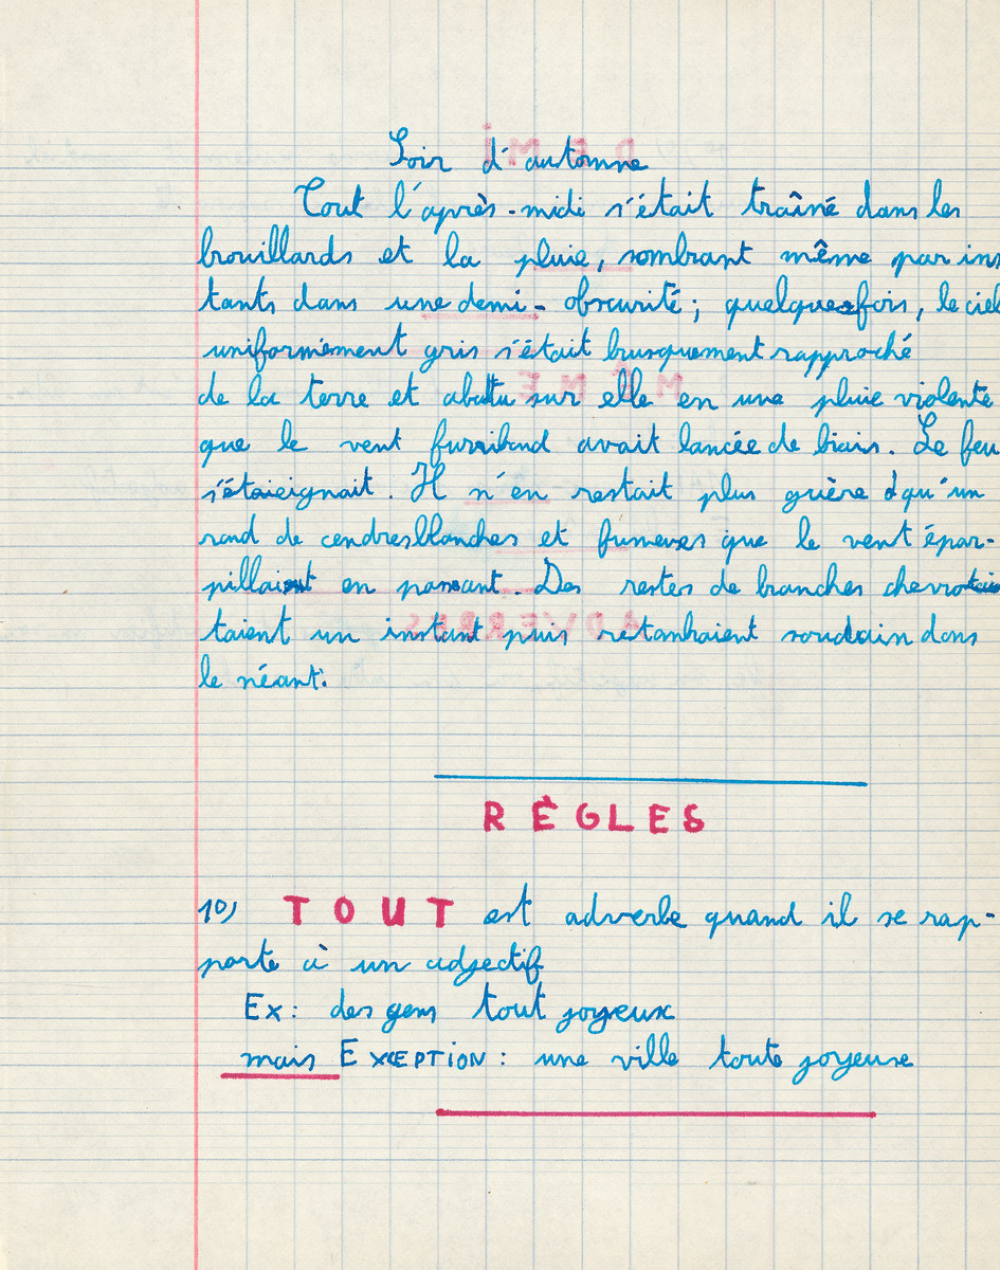 Soir d'automne
Tout l'après-midi s'était traîné dans les
brouillards et la pluie, sombrant même par ins
tants dans une demi-obscurité; quelquesfois, le ciel
uniformément gris s'était brusquement rapproché
de la terre et abattu sur elle en une pluie violente
que le vent furribond avait lancée de biais. Le feu
s'éteignait. Il n'en restait plus guère qu'un
rond de cendres blanches et fumeuses que le vent épar-
pillaient en passant. Des restes de branches
taient un instant puis retombaient soudain dans
le néant.
RÈGLES
1o) TOUT est adverbe quand il se rap-
porte à un adjectif
Ex: des gens tout joyeux
mais EXCEPTION: une ville toute joyeuse